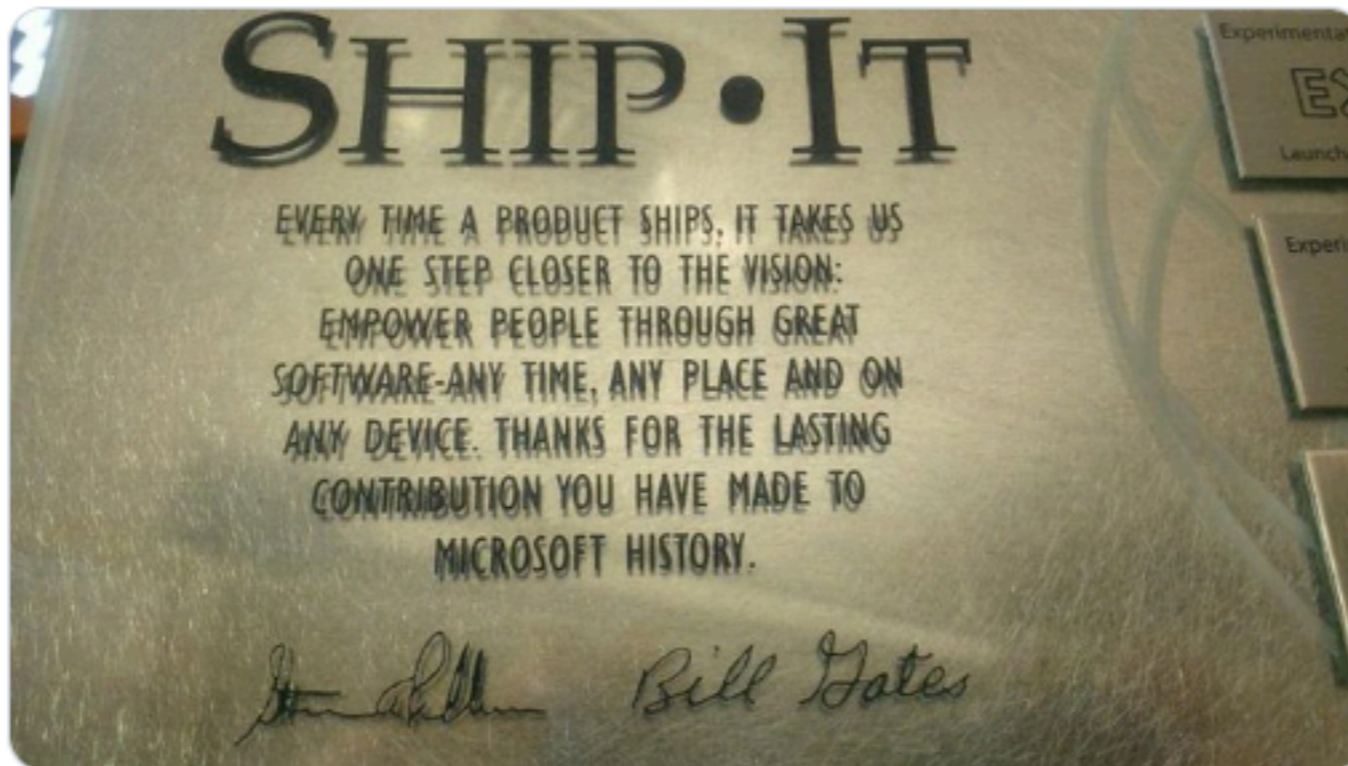 SHIP•IT
EVERY TIME A PRODUCT SHIPS, IT TAKES US
ONE STEP CLOSER TO THE VISION:
EMPOWER PEOPLE THROUGH GREAT
SOFTWARE-ANY TIME, ANY PLACE AND ON
ANY DEVICE. THANKS FOR THE LASTING
CONTRIBUTION YOU HAVE MADE TO
MICROSOFT HISTORY.
Bill Gates
Launch